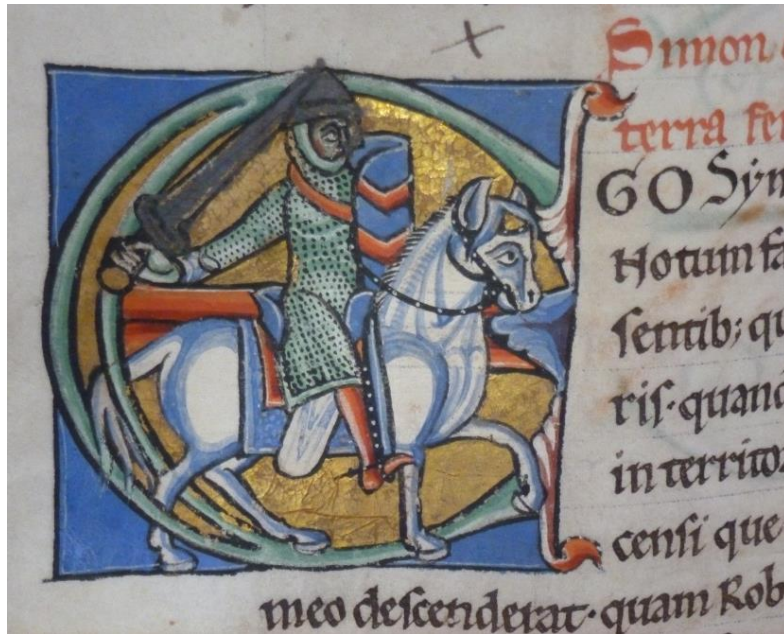 Simon
terra
EGO Sym
Notum fa
sentib; qu
ris. quand
in territo
censi que
meo descenderat. quam Rob